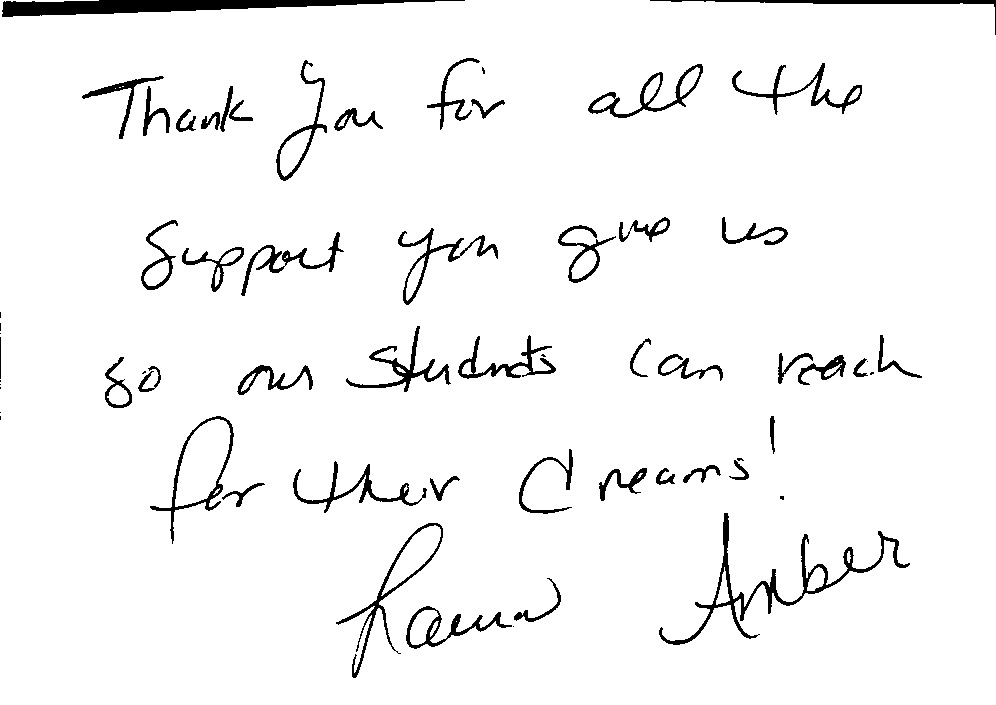 Thank you for all the
Support you give us
so our students can reach
for their dreams!
Laura Amber